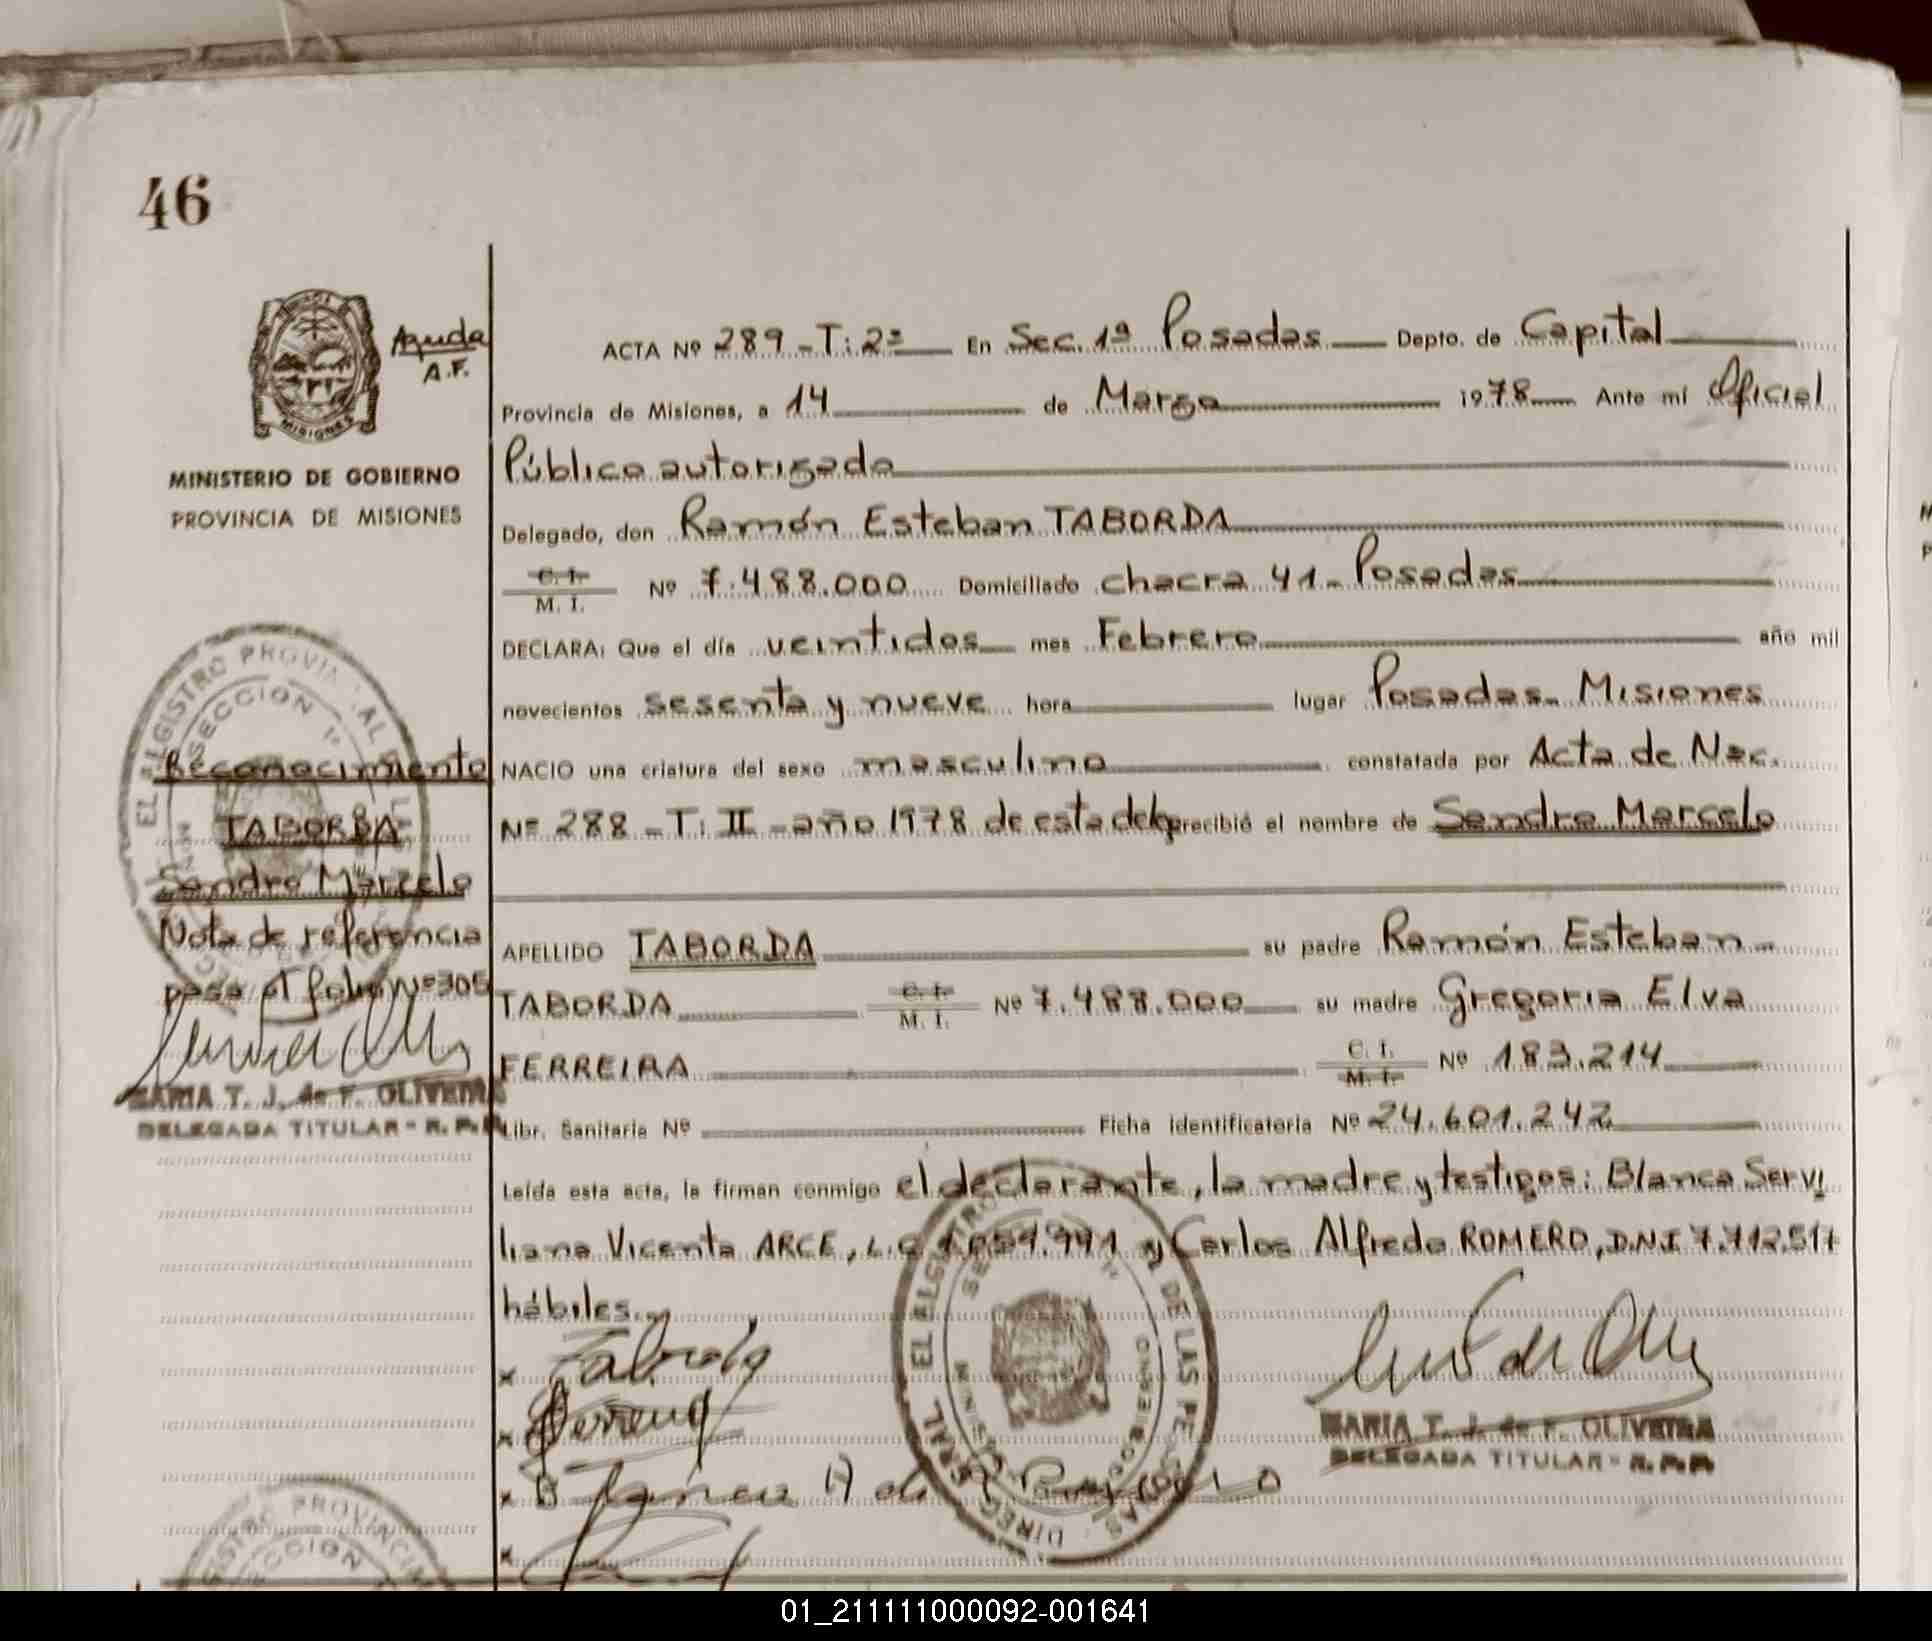 46
Ayuda
A.F.
MISIONES
MINISTERIO DE GOBIERNO
PROVINCIA DE MISIONES
ACTA Nº 289 - T: 2º En Sec. 1ª Posadas Depto. de Capital
Provincia de Misiones, a 14 de Marzo 1978 Ante mí Oficial
Público autorizado
Delegado, don Ramón Esteban TABORDA
C. I.
M. I. Nº 7.488.000 Domiciliado chacra 41- Posadas
DECLARA: Que el día veintidos mes Febrero año mil
novecientos sesenta y nueve hora lugar Posadas- Misiones
NACIO una criatura del sexo masculino constatada por Acta de Nac.
Nº 288 - T: II - año 1978 de esta deleg recibió el nombre de Sandro Marcelo
APELLIDO TABORDA su padre Ramón Esteban -
TABORDA C. I. M. I. Nº 7.488.000 su madre Gregoria Elva
FERREIRA C. I. M. I. Nº 183.214
Libr. Sanitaria Nº Ficha identificatoria Nº 24.601.242
Leída esta acta, la firman conmigo el declarante, la madre y testigos: Blanca Servi
liana Vicenta ARCE, L.C 1.059.991 y Carlos Alfredo ROMERO, D.N.I 7.712.517
hábiles.-
Reconocimiento
TABORDA
Sandro Marcelo
Nota de referencia
pasa al folio Nº 305
MARIA T. J. de F. OLIVEIRA
DELEGADA TITULAR - R. P. P.
EL REGISTRO PROVINCIAL
SECCION 1ª
x Taborda
x Ferreira
x
x
MARIA T. J. de F. OLIVEIRA
DELEGADA TITULAR - R. P. P.
DE LAS PE
GOBIERNO
REGISTRO PROVINCI
SECCION
01_211111000092-001641